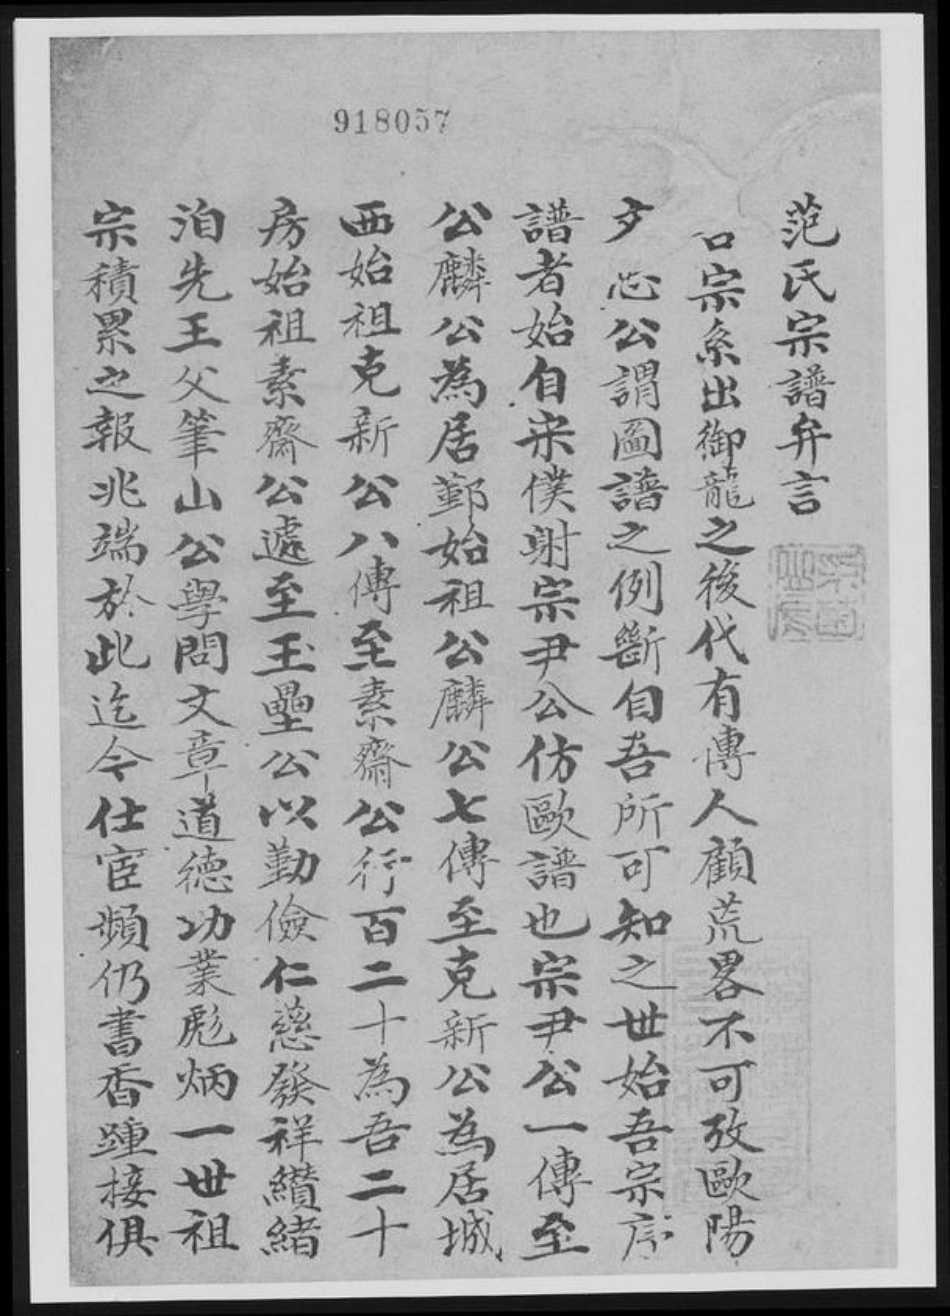 918057
范氏宗譜弁言
宗系出御龍之後代有傳人顧荒畧不可攷歐陽
文忠公謂圖譜之例斷自吾所可知之世始吾宗序
譜者始自宋僕射宗尹公仿歐譜也宗尹公一傳至
公麟公為居鄞始祖公麟公七傳至克新公為居城
西始祖克新公八傳至素齋公行百二十為吾二十
房始祖素齋公遞至玉壘公以勤儉仁慈發祥纘緒
洎先王父筆山公學問文章道德功業彪炳一世祖
宗積累之報兆端於此迄今仕宦頻仍書香踵接俱